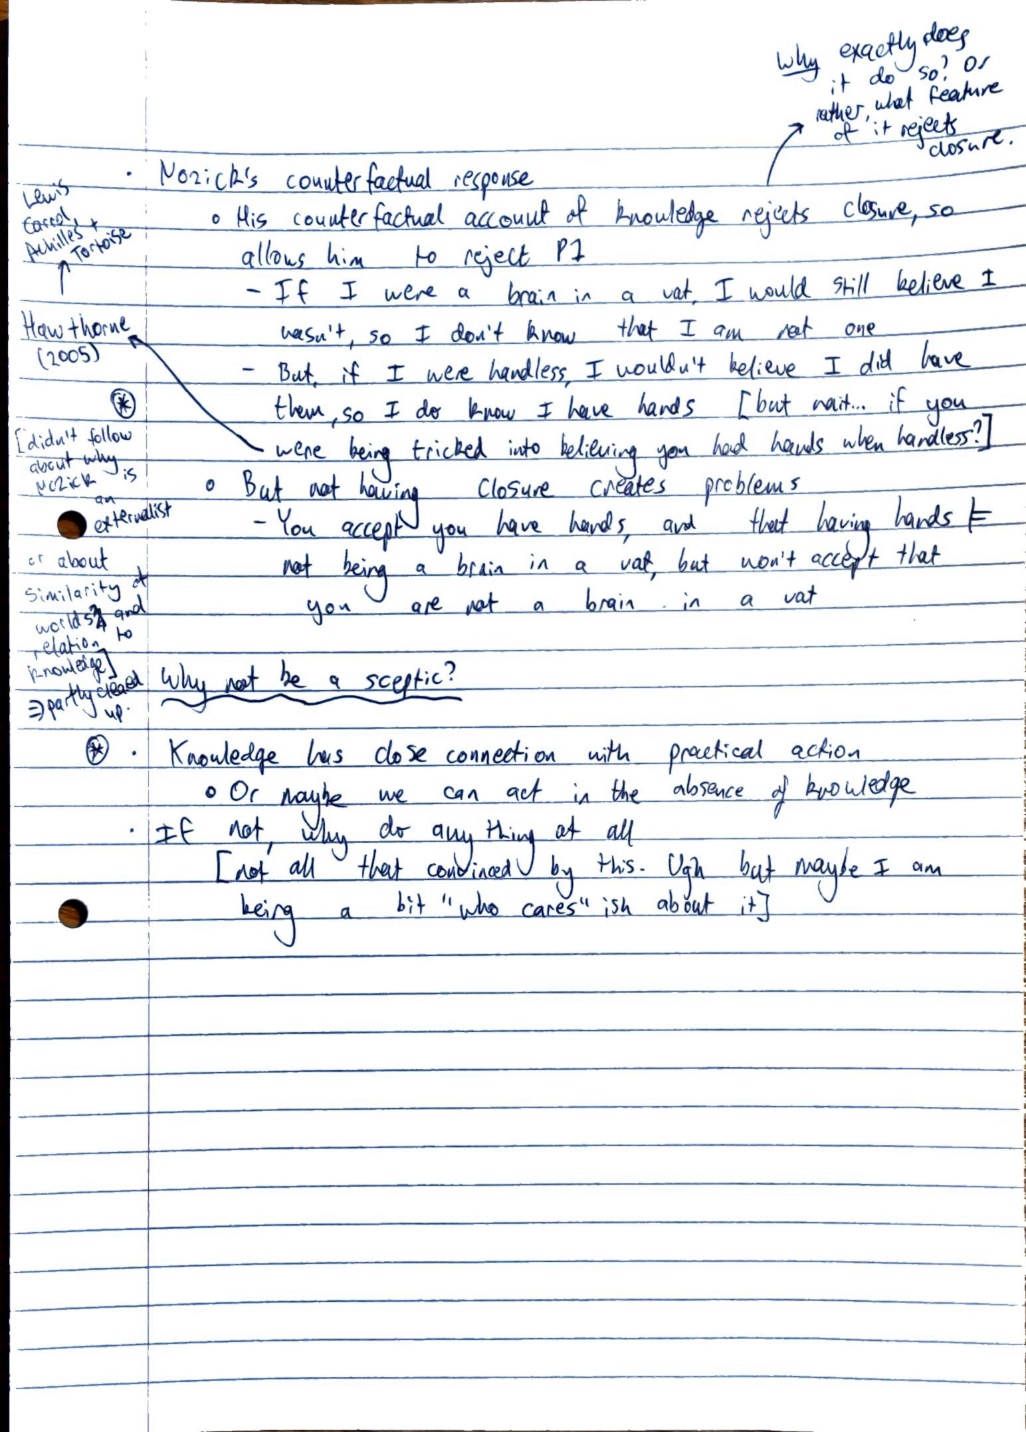 Why exactly does
it do so? Or
rather, what feature
of it rejects
closure.
• Nozick's counterfactual response
o His counterfactual account of knowledge rejects closure, so
allows him to reject P1
- If I were a brain in a vat, I would still believe I
wasn't, so I don't know that I am not one
- But, if I were handless, I wouldn't believe I did have
them, so I do know I have hands [but wait... if you
were being tricked into believing you had hands when handless?]
o But not having closure creates problems
- You accept you have hands, and that having hands ⊨
not being a brain in a vat, but won't accept that
you are not a brain in a vat
Lewis
Carrol,
Achilles +
Tortoise
Hawthorne
(2005)
⊛
[didn't follow
about why
Nozick is
an
externalist
or about
similarity of
worlds and
relation to
knowledge]
⇒ partly cleared
up.
Why not be a sceptic?
⊛ • Knowledge has close connection with practical action
o Or maybe we can act in the absence of knowledge
• If not, why do anything at all
[not all that convinced by this. Ugh but maybe I am
being a bit "who cares" ish about it]